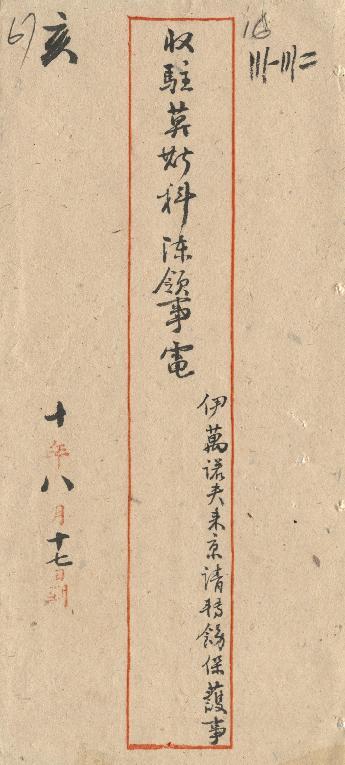 收駐莫斯科陳領事電
伊萬諾夫來京請轉飭保護事
十年八月十七日到
亥